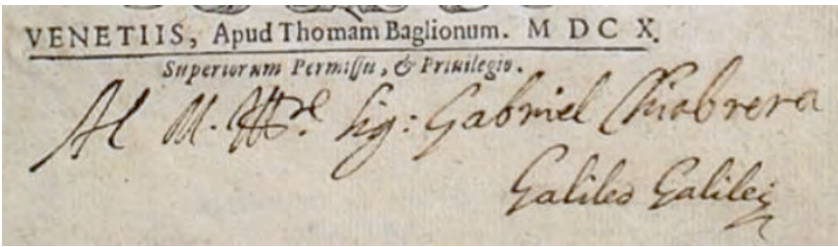 VENETIIS, Apud Thomam Baglionum. M DC X.
Superiorum Permissu, & Priuilegio.
Al M. Ill.re Sig: Gabriel Chiabrera
Galileo Galilei